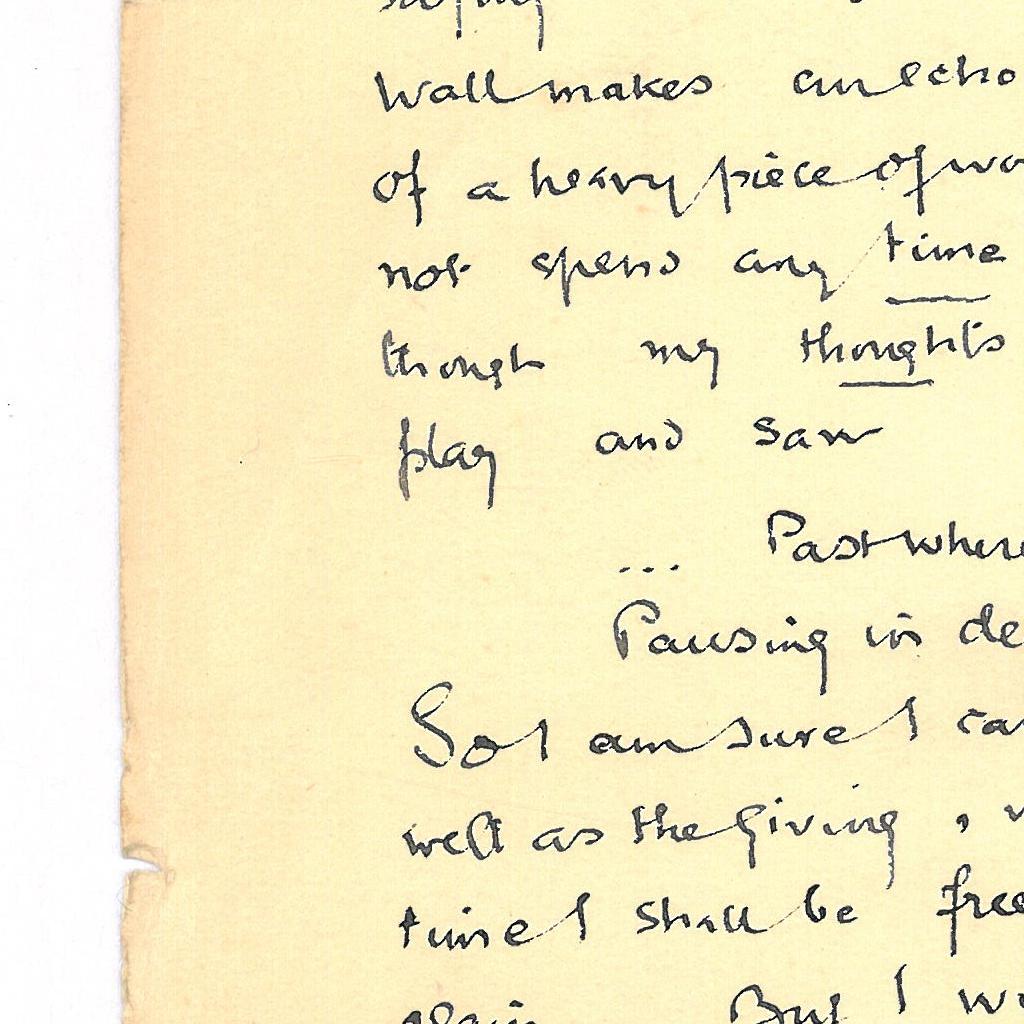 Wall makes an echo
of a heavy piece of wo
not spend any time
though my thoughts
play and saw
... Past where
Pausing in de
So I am sure I ca
well as the giving, w
time I shall be free
again. But I wo